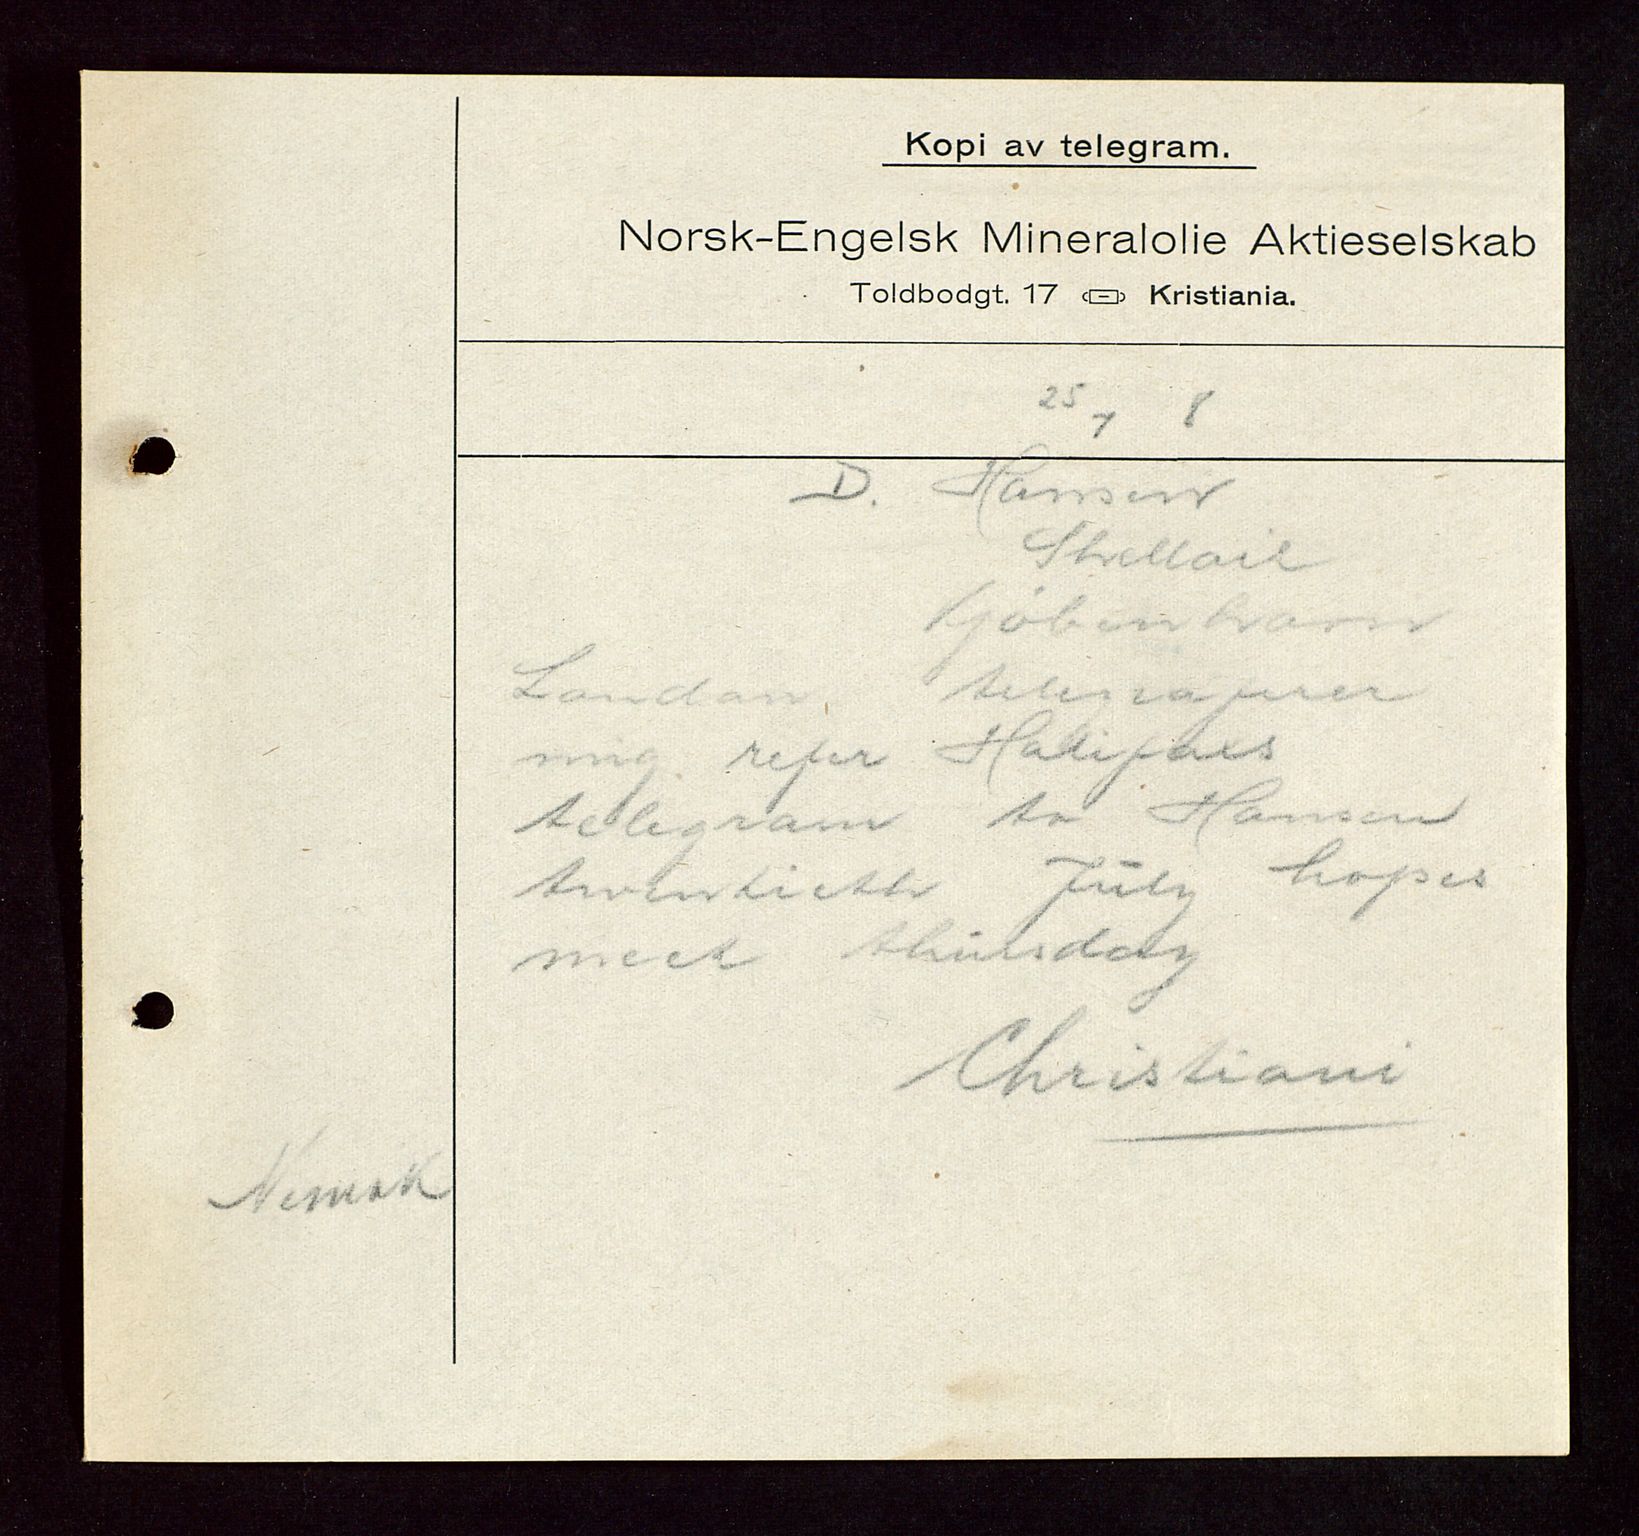 Kopi av telegram.
Norsk-Engelsk Mineralolie Aktieselskab
Toldbodgt. 17 Kristiania.
25/7 8
D. Hansen
Shelloil
Kjöbenhavn
London telegraferer
mig refer Halifaxs
telegram to Hansen
twentieth July hopes
meet thursday
Christiani
Nemak